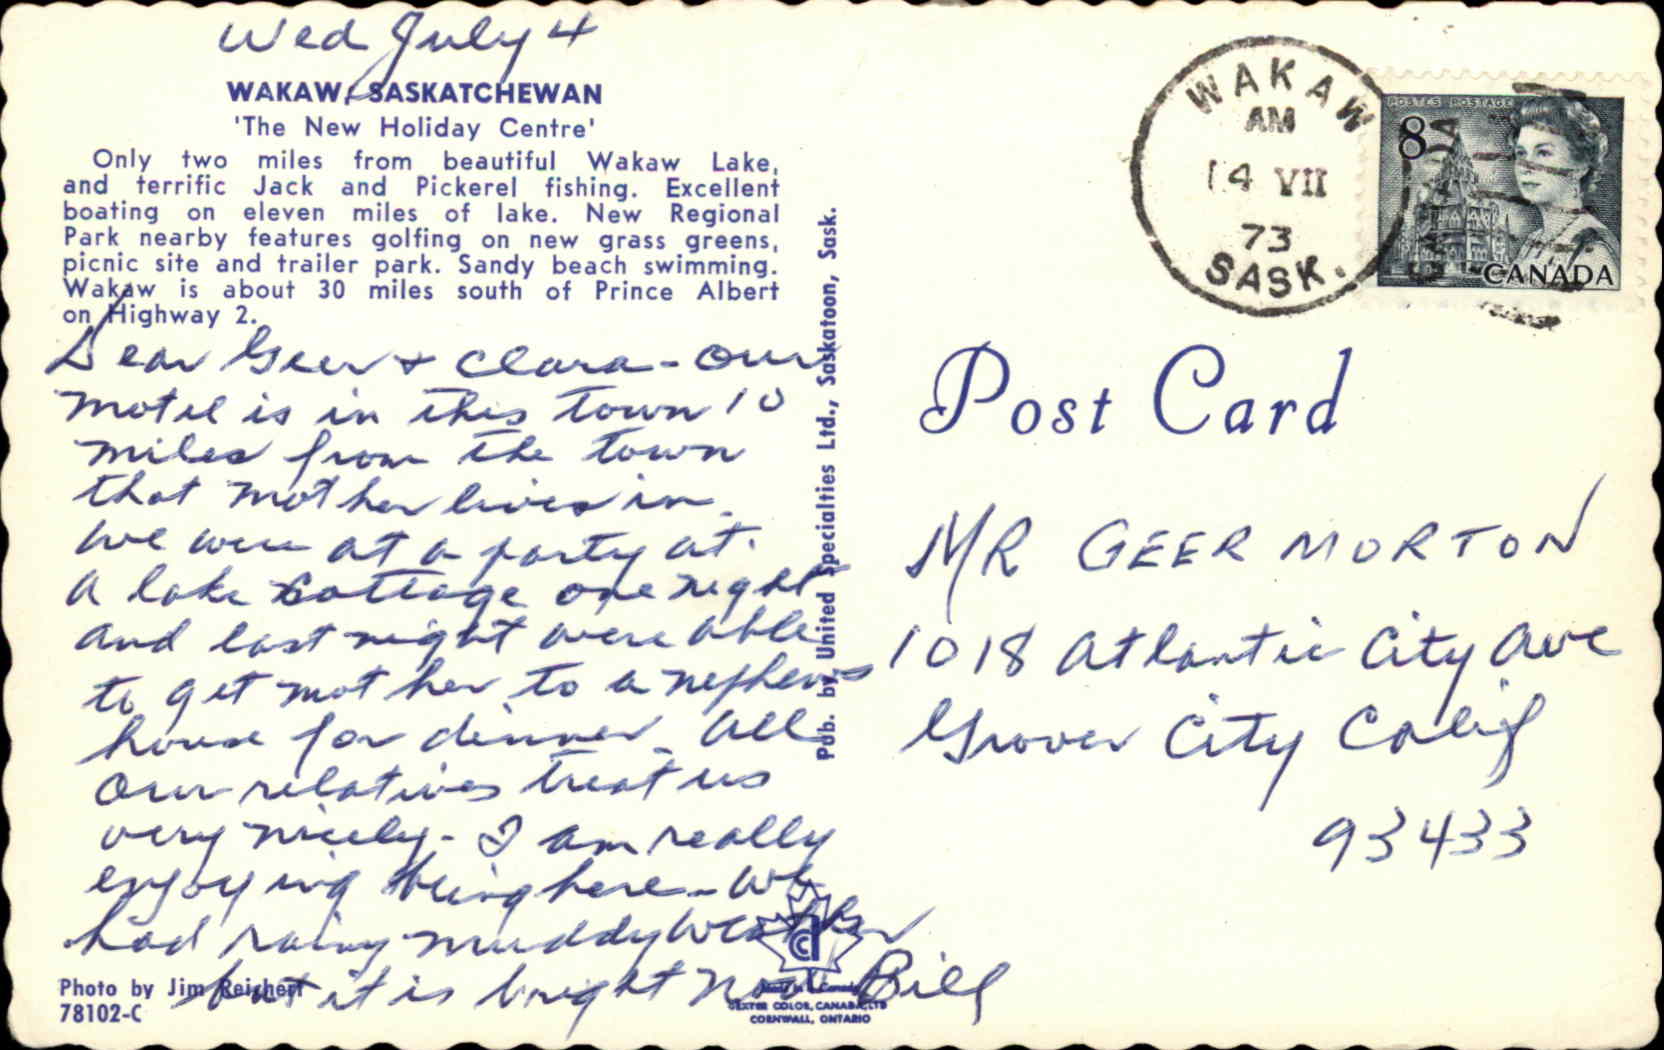 Wed July 4
WAKAW, SASKATCHEWAN
'The New Holiday Centre'
Only two miles from beautiful Wakaw Lake,
and terrific Jack and Pickerel fishing. Excellent
boating on eleven miles of lake. New Regional
Park nearby features golfing on new grass greens,
picnic site and trailer park. Sandy beach swimming.
Wakaw is about 30 miles south of Prince Albert
on Highway 2.
Dear Geer + Clara - Our
motel is in this town 10
miles from the town
that mother lives in.
We were at a party at
a lake cottage one night
and last night were able
to get mother to a nephews
house for dinner. All
our relatives treat us
very nicely - I am really
enjoying being here - We
had rainy muddy weather
but it is bright now Bill
Photo by Jim Reichert
78102-C
Pub. by United Specialties Ltd., Saskatoon, Sask.
DEXTER COLOR, CANADA, LTD
CORNWALL, ONTARIO
WAKAW
AM
14 VII
73
SASK.
POSTES POSTAGE
8
CANADA
Post Card
MR GEER MORTON
1018 Atlantic City Ave
Grover City Calif
93433